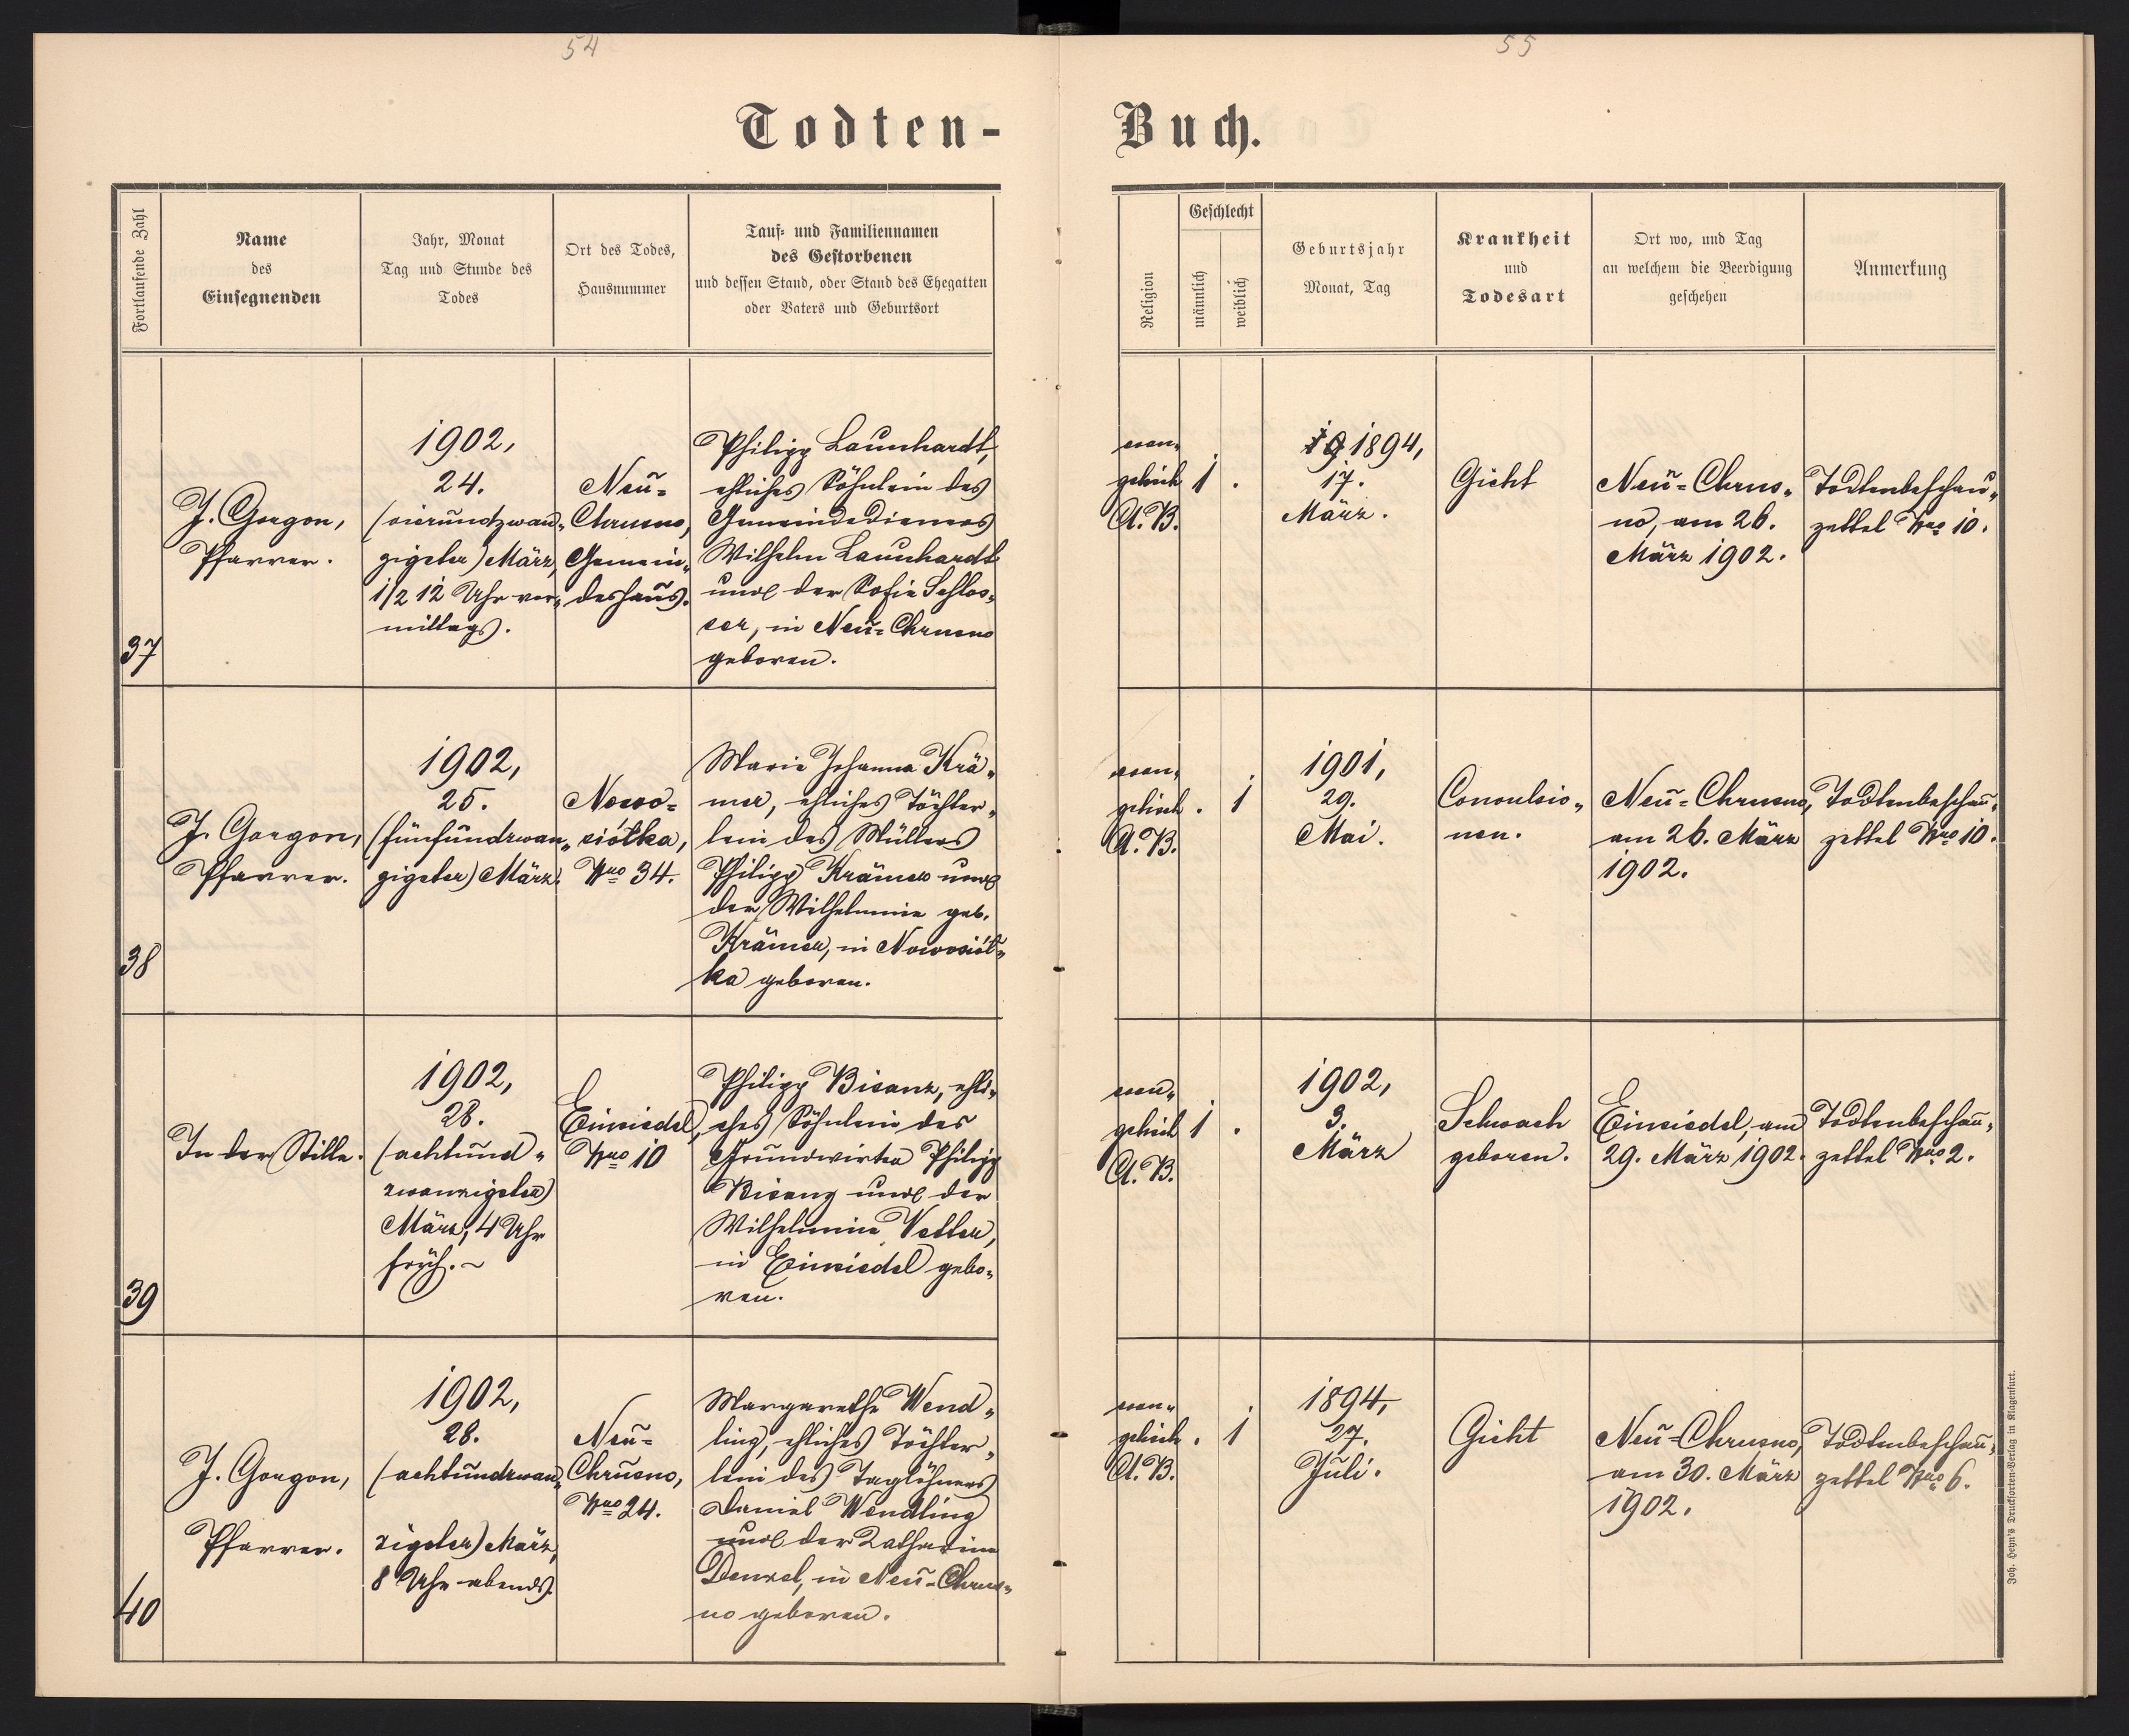 54
55
Todten-
Buch.
Fortlaufende Zahl
Name
des
Einsegnenden
Jahr, Monat
Tag und Stunde des
Todes
Ort des Todes,
Hausnummer
Tauf- und Familiennamen
des Gestorbenen
und dessen Stand, oder Stand des Ehegatten
oder Vaters und Geburtsort
Religion
Geschlecht
männlich
weiblich
Geburtsjahr
Monat, Tag
Krankheit
und
Todesart
Ort wo, und Tag
an welchem die Beerdigung
geschehen
Anmerkung
37
J. Gorgon,
Pfarrer.
1902,
24.
(vierundzwan„
zigster) März,
1/2 12 Uhr vor„
mittags.
Neu=
Chrusno,
Gemein„
deshaus.
Philipp Launhardt,
ehliches Söhnlein des
Gemeindedieners
Wilhelm Launhardt
und der Sofie Schlos„
ser, in Neu=Chrusno
geboren.
evan„
gelisch
A. B.
1 .
19 1894,
17.
März.
Gicht
Neu=Chrus„
no, am 26.
März 1902.
Todtenbeschau„
zettel Nro 10.
38
J. Gorgon,
Pfarrer.
1902,
25.
(fünfundzwan„
zigster) März.
Nowo=
siółka,
Nro 34.
Marie Johanna Krä„
mer, ehliches Töchter„
lein des Müllers
Philipp Krämer und
der Wilhelmine geb.
Krämer, in Nowosiół„
ka geboren.
evan„
gelisch
A. B.
. 1
1901,
29.
Mai.
Convulsio„
nen.
Neu=Chrusno,
am 26. März
1902.
Todtenbeschau„
zettel Nro 10.
39
In der Stille.
1902,
28.
(achtund„
zwanzigster)
März, 4 Uhr
früh.~
Einsiedel,
Nro 10
Philipp Bisanz, ehli„
ches Söhnlein des
Grundwirten Philipp
Bisanz und der
Wilhelmine Vetter,
in Einsiedel gebo„
ren.
evan„
gelisch
A. B.
1 .
1902,
3.
März
Schwach
geboren.
Einsiedel, am
29. März 1902.
Todtenbeschau„
zettel Nro 2.
40
J. Gorgon,
Pfarrer.
1902,
28.
(achtundzwan„
zigster) März,
8 Uhr abends.
Neu=
Chrusno,
Nro 24.
Margarethe Wend„
ling, ehliches Töchter„
lein des Taglöhners
Daniel Wendling
und der Katharina
Denzel, in Neu=Chrus„
no geboren.
evan„
gelisch
A. B.
. 1
1894,
27.
Juli.
Gicht
Neu=Chrusno,
am 30. März
1902.
Todtenbeschau„
zettel Nro 6.
Joh. Heyn's Drucksorten-Verlag in Klagenfurt.